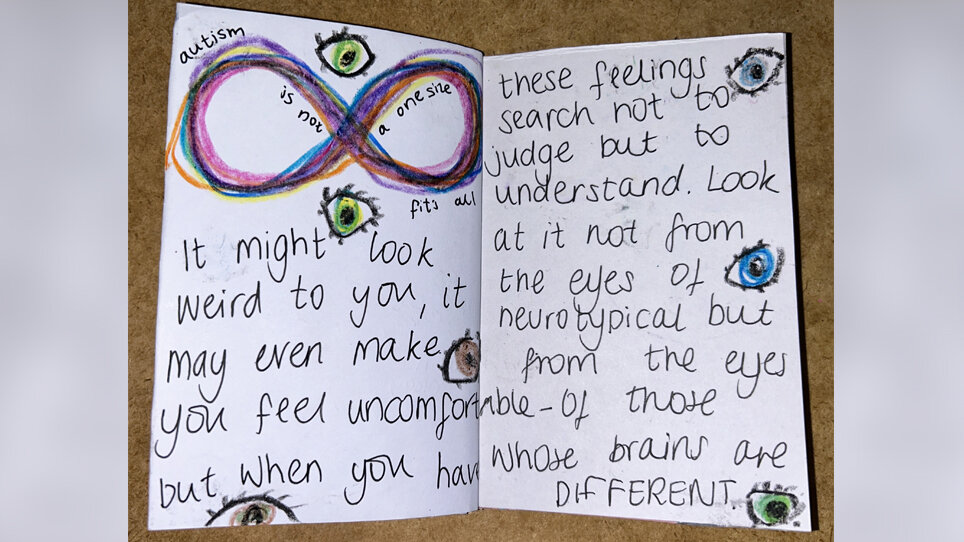 autism
is not
a one size
fits all
It might look
weird to you, it
may even make
you feel uncomfortable-
but when you have
these feelings
search not to
judge but to
understand. Look
at it not from
the eyes of
neurotypical but
from the eyes
of those
whose brains are
DIFFERENT.